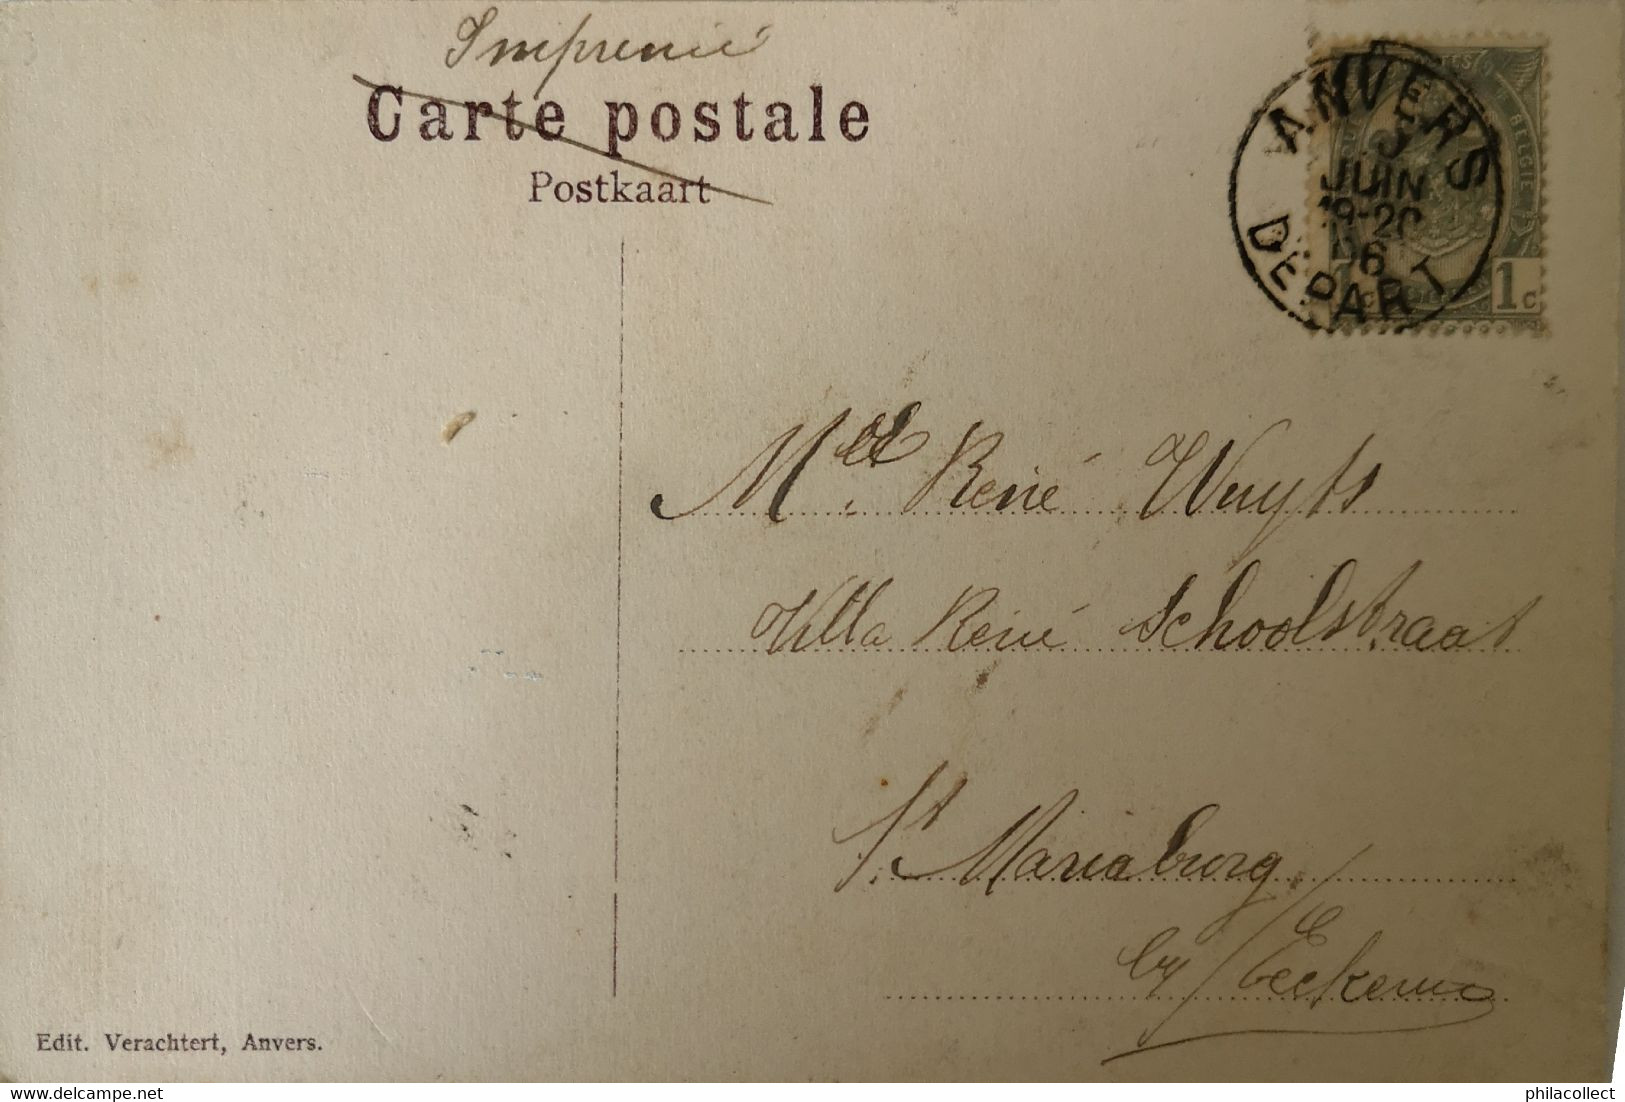 Imprimé
Carte postale
Postkaart
ANVERS
JUIN
19-20
06
DÉPART
BELGIE
1c
Melle René Wuyts
Villa René Schoolstraat
St Mariaburg
by Eeckeren
Edit. Verachtert, Anvers.
philacollect